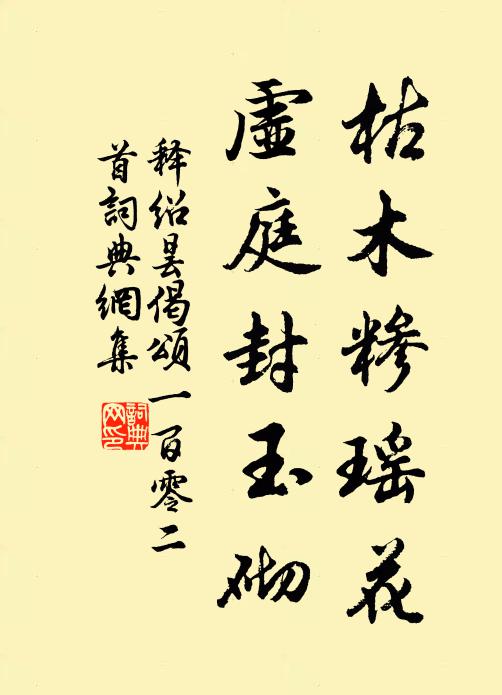 枯木糝瑶花
虛庭封玉砌
释绍昙偈頌一百零二
首詞典網集
詞典
网印